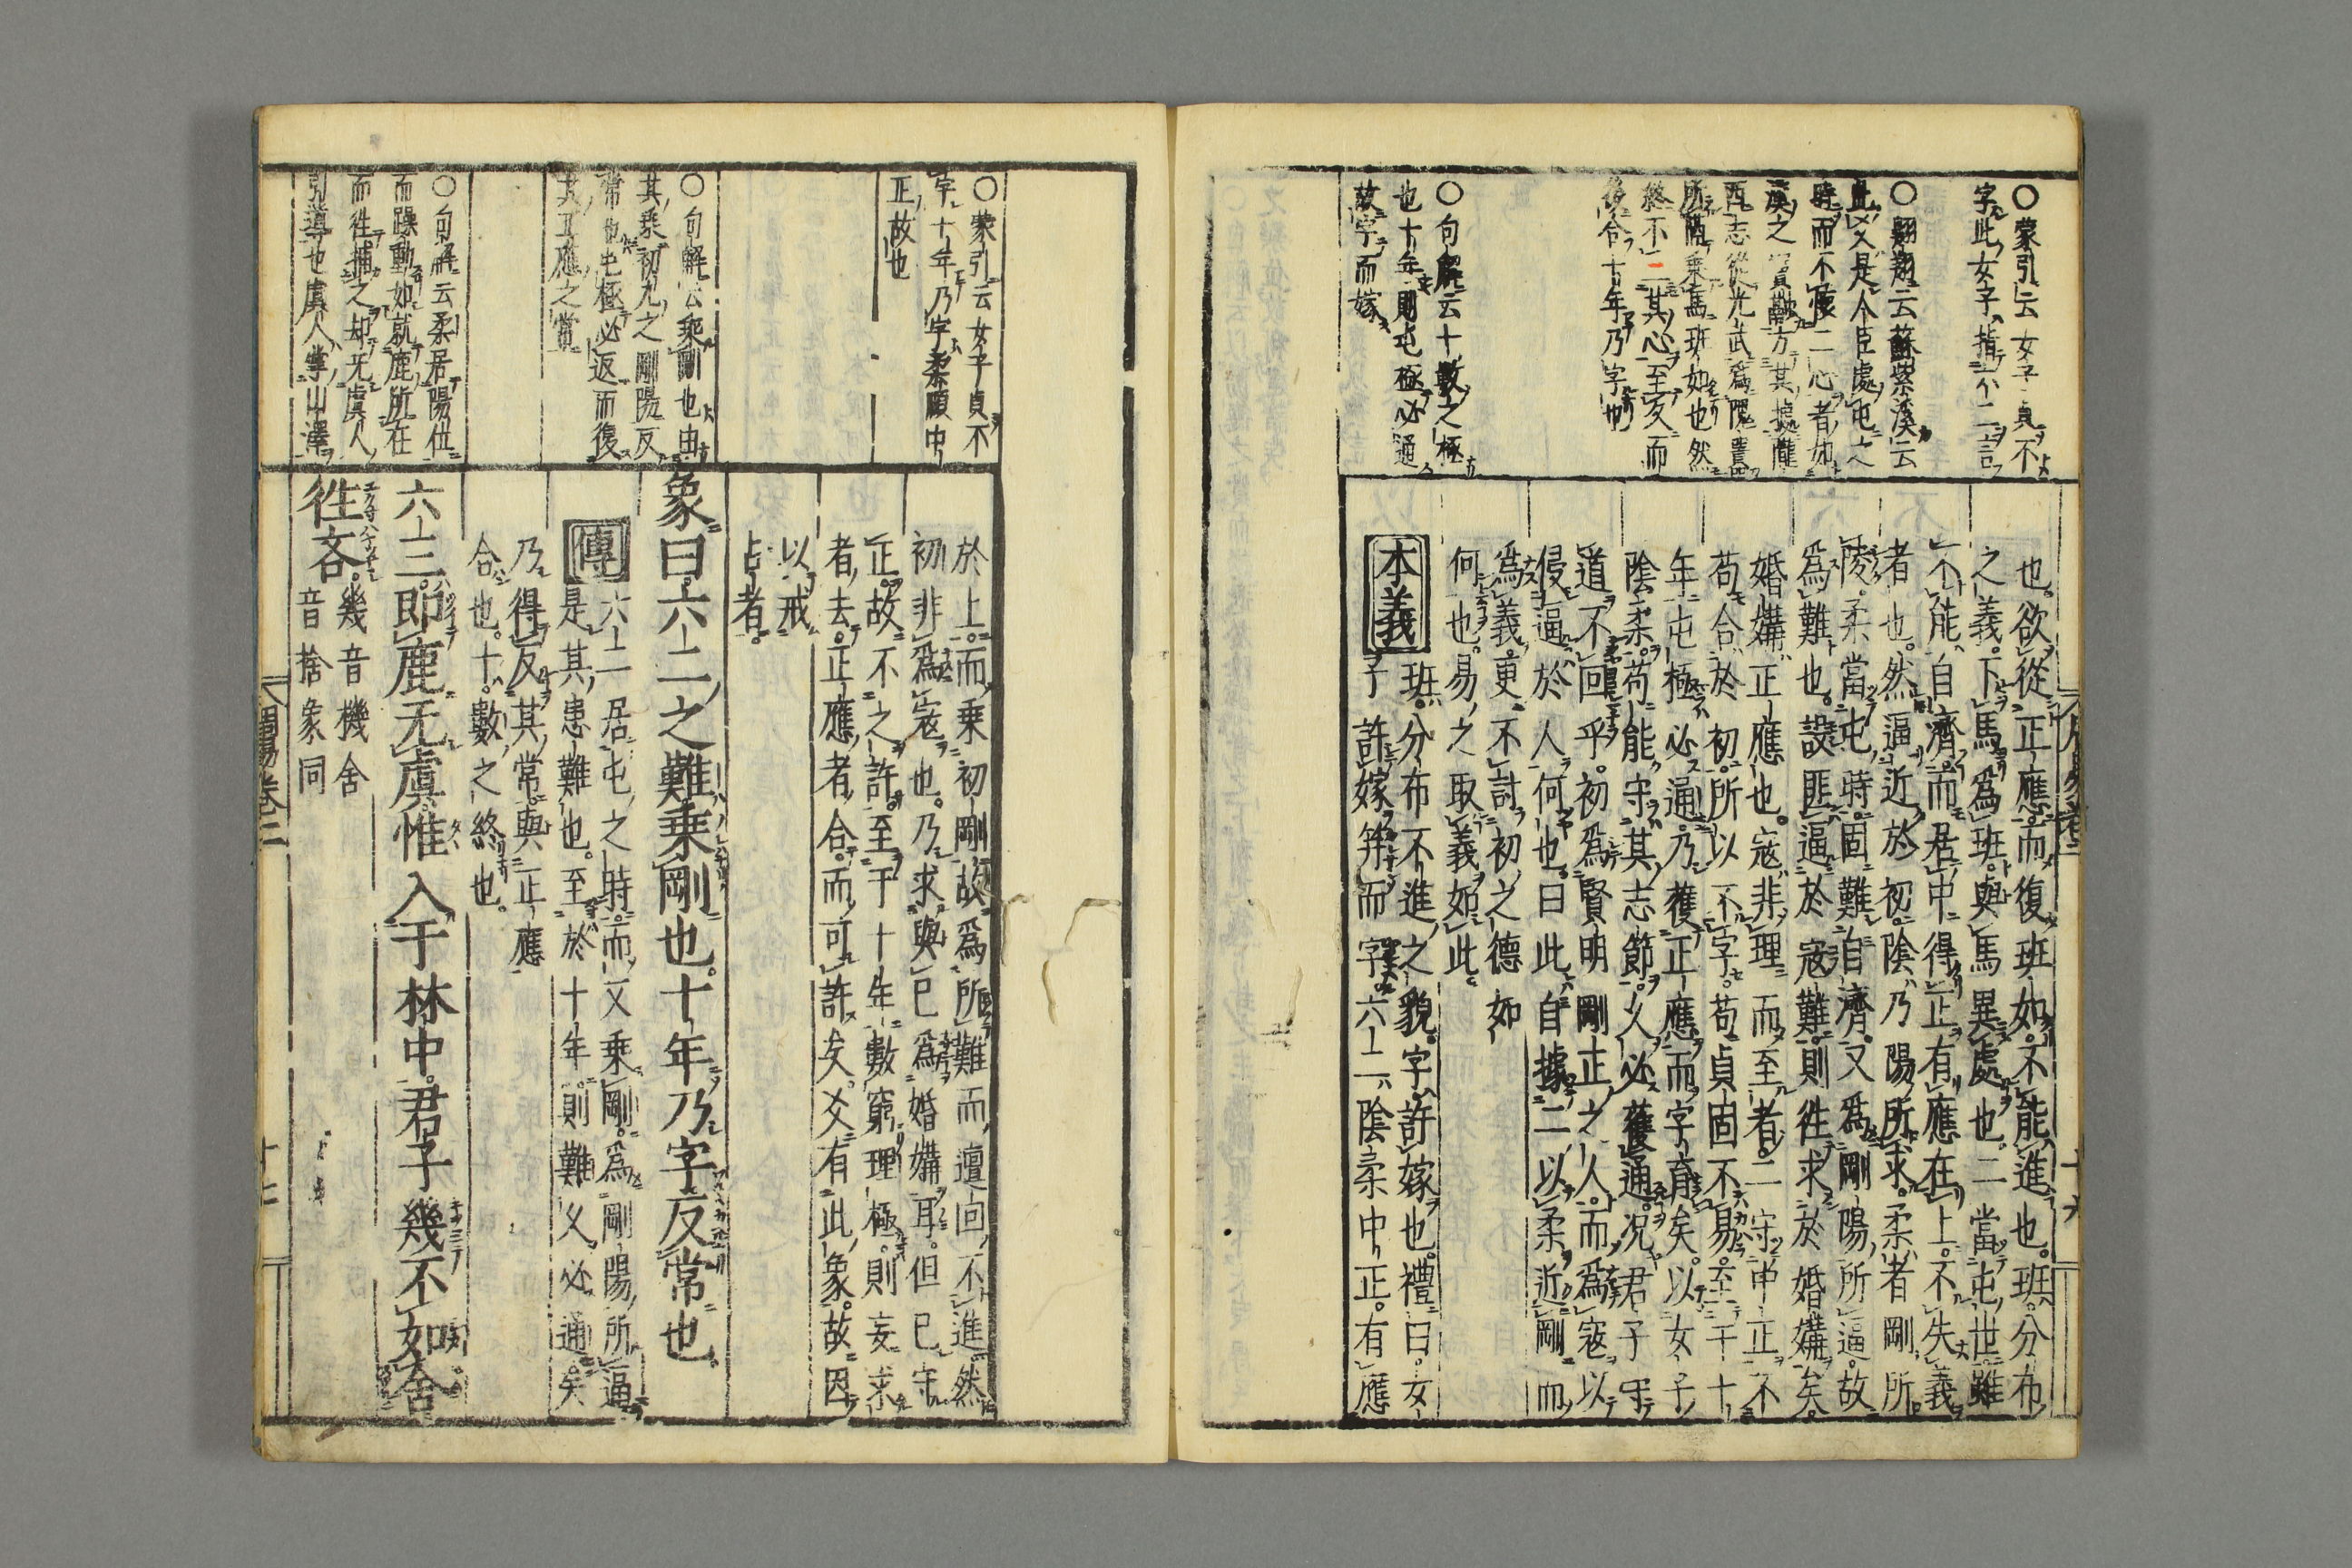 〇蒙引云女子貞不
字此女子指六二言
〇翺翔云蘇紫溪云
此爻是人臣處屯之
時而不懷二心者如
漢之竇融方其據隴
西志從光武爲隗囂
所隔乗馬班如也然
終不二其心至亥而
後合十年乃字也
〇句解云十數之極
也十年則屯極必通
故字而嫁
也欲從正應而復班如不能進也班分布
之義下馬爲班與馬異處也二當屯世雖
不能自濟而居中得正有應在上不失義
者也然逼近於初陰乃陽所求柔者剛所
陵柔當屯時固難自濟又爲剛陽所逼故
爲難也設匪逼於寇難則徃求於婚媾矣
婚媾正應也寇非理而至者二守中正不
苟合於初所以不字苟貞固不易至于十
年屯極必通乃獲正應而字育矣以女子
陰柔苟能守其志節乆必獲通況君子守
道不回乎初爲賢明剛正之人而爲寇以
侵逼於人何也曰此自據二以柔近剛而
爲義更不討初之德如
何也易之取義如此
本義
班分布不進之貌字許嫁也禮曰女
子許嫁笄而字六二陰柔中正有應
〇蒙引云女子貞不
字十年乃字柔順中
正故也
〇句解云乗剛也由
其乗初九之剛陽反
常也屯極必返而復
其正應之常
〇句解云柔居陽位
而躁動如就鹿所在
而徃捕之却无虞人
引導也虞人掌山澤
於上而乗初剛故爲所難而邅回不進然
初非爲寇也乃求與已爲婚媾耳但已守
正故不之許至于十年數窮理極則妄求
者去正應者合而可許矣爻有此象故因
以戒
占者
象曰六二之難乗剛也十年乃字反常也
傳
六二居屯之時而又乗剛爲剛陽所逼
是其患難也至於十年則難乆必通矣
乃得反其常與正應
合也十數之終也
六三即鹿无虞惟入于林中君子幾不如舍
徃吝
幾音機舍
音捨象同
周易卷二